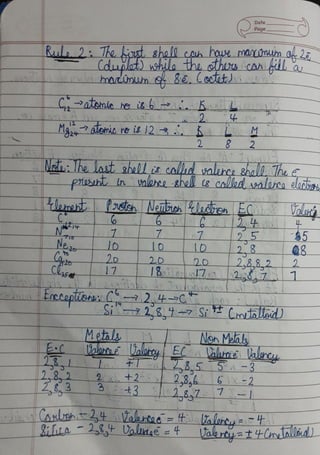 Date
Page
Rule 2: The first shell can have maximum of 2ē
(duplet) while the others can fill a
maximum of 8ē. (octet)
C → atomic no is 6 → ∴ K L
2 4
Mg → atomic no is 12 → ∴ K L M
2 8 2
Note: The last shell is called valence shell. The ē
present in valence shell is called valence electron
Element Proton Neutron Electron EC Valency
C 6 6 6 2,4 4
N 7 7 7 2,5 5
Ne 10 10 10 2,8 8
Ca 20 20 20 2,8,8,2 2
Cl 17 18 17 2,8,7 1
Exceptions: C⁶ → 2,4 → C
Si¹⁴ → 2,8,4 → Si (metalloid)
Metals Non Metals
E.C Valence Valency EC Valence Valency
2,8,1 1 +1 2,8,5 5 -3
2,8,2 2 +2 2,8,6 6 -2
2,8,3 3 +3 2,8,7 7 -1
Carbon - 2,4 Valence ē = 4 Valency = -4
- 2,8,4 Valence ē = 4 Valency = ± 4 (metalloid)